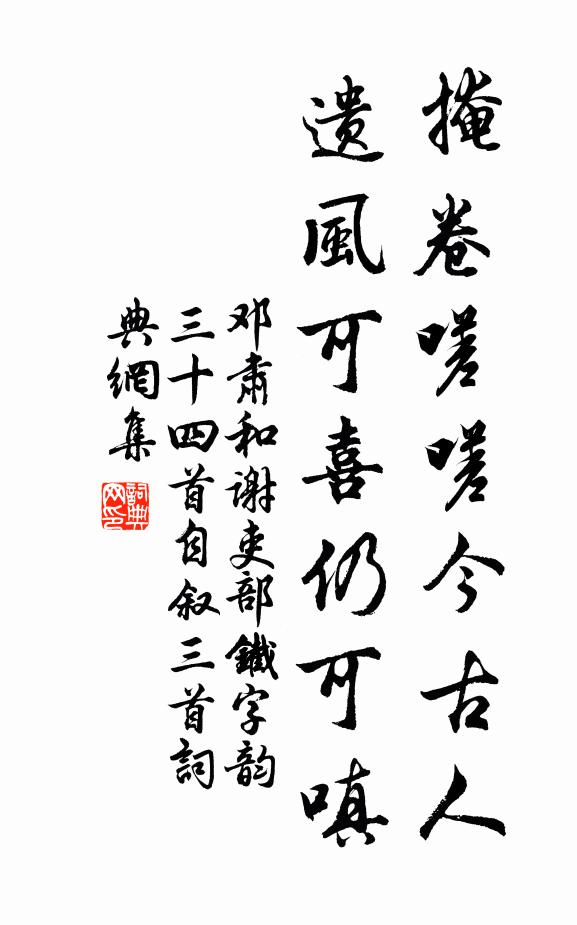 掩卷嗟嗟今古人
遗風可喜仍可嗔
邓肃和谢吏部鐵字韵
三十四首自叙三首詞
典網集
詞典网印